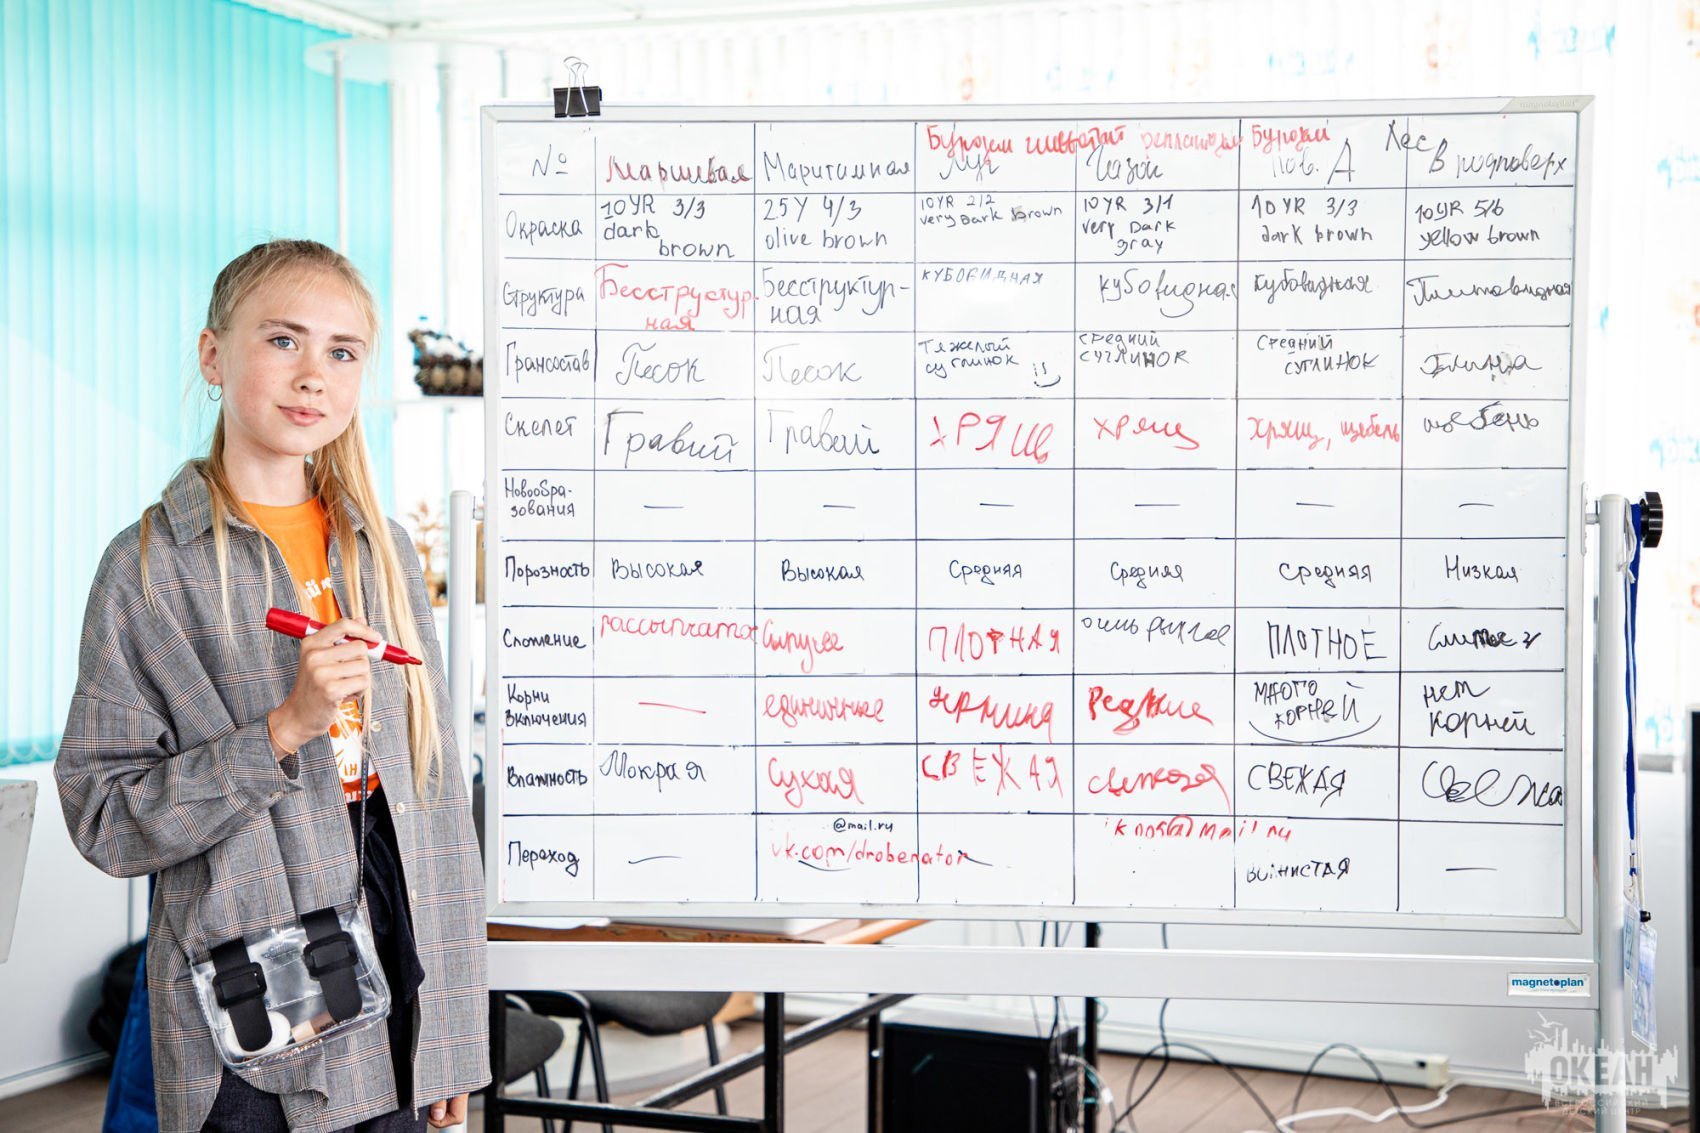 magnetoplan
Бурозем глеев
Бурозем
Лес
№ Маршевая Маритимная Луг Газон Пов. Д В подповерх
Окраска
10YR 3/3
dark
brown
2.5Y 4/3
olive brown
10YR 2/2
very dark brown
10YR 3/1
very dark
gray
10YR 3/3
dark brown
10YR 5/6
yellow brown
Структура
Бесструктур-
ная
Бесструктур-
ная
кубовидная
кубовидная
кубовидная
Плитовидная
Грансостав
Песок
Песок
Тяжелый
суглинок !!
средний
суглинок
Средний
суглинок
Глина
Скелет Гравий Гравий ХРЯЩ хрящ хрящ, щебень щебень
Новообра-
зования
— — — — — —
Порозность Высокая Высокая Средняя Средняя Средняя Низкая
Сложение рассыпчатое Сыпучее ПЛОТНАЯ очень рыхлое ПЛОТНОЕ Слитное
Корни
Включения
—
единичные
Редкие
много
корней
нет
корней
Влажность Мокрая Сухая СВЕЖАЯ свежая СВЕЖАЯ Свежая
Переход
—
@mail.ru
vk.com/drobenator
mail ru
волнистая
—
magnetoplan
ОКЕАН
ВСЕРОССИЙСКИЙ
ДЕТСКИЙ ЦЕНТР